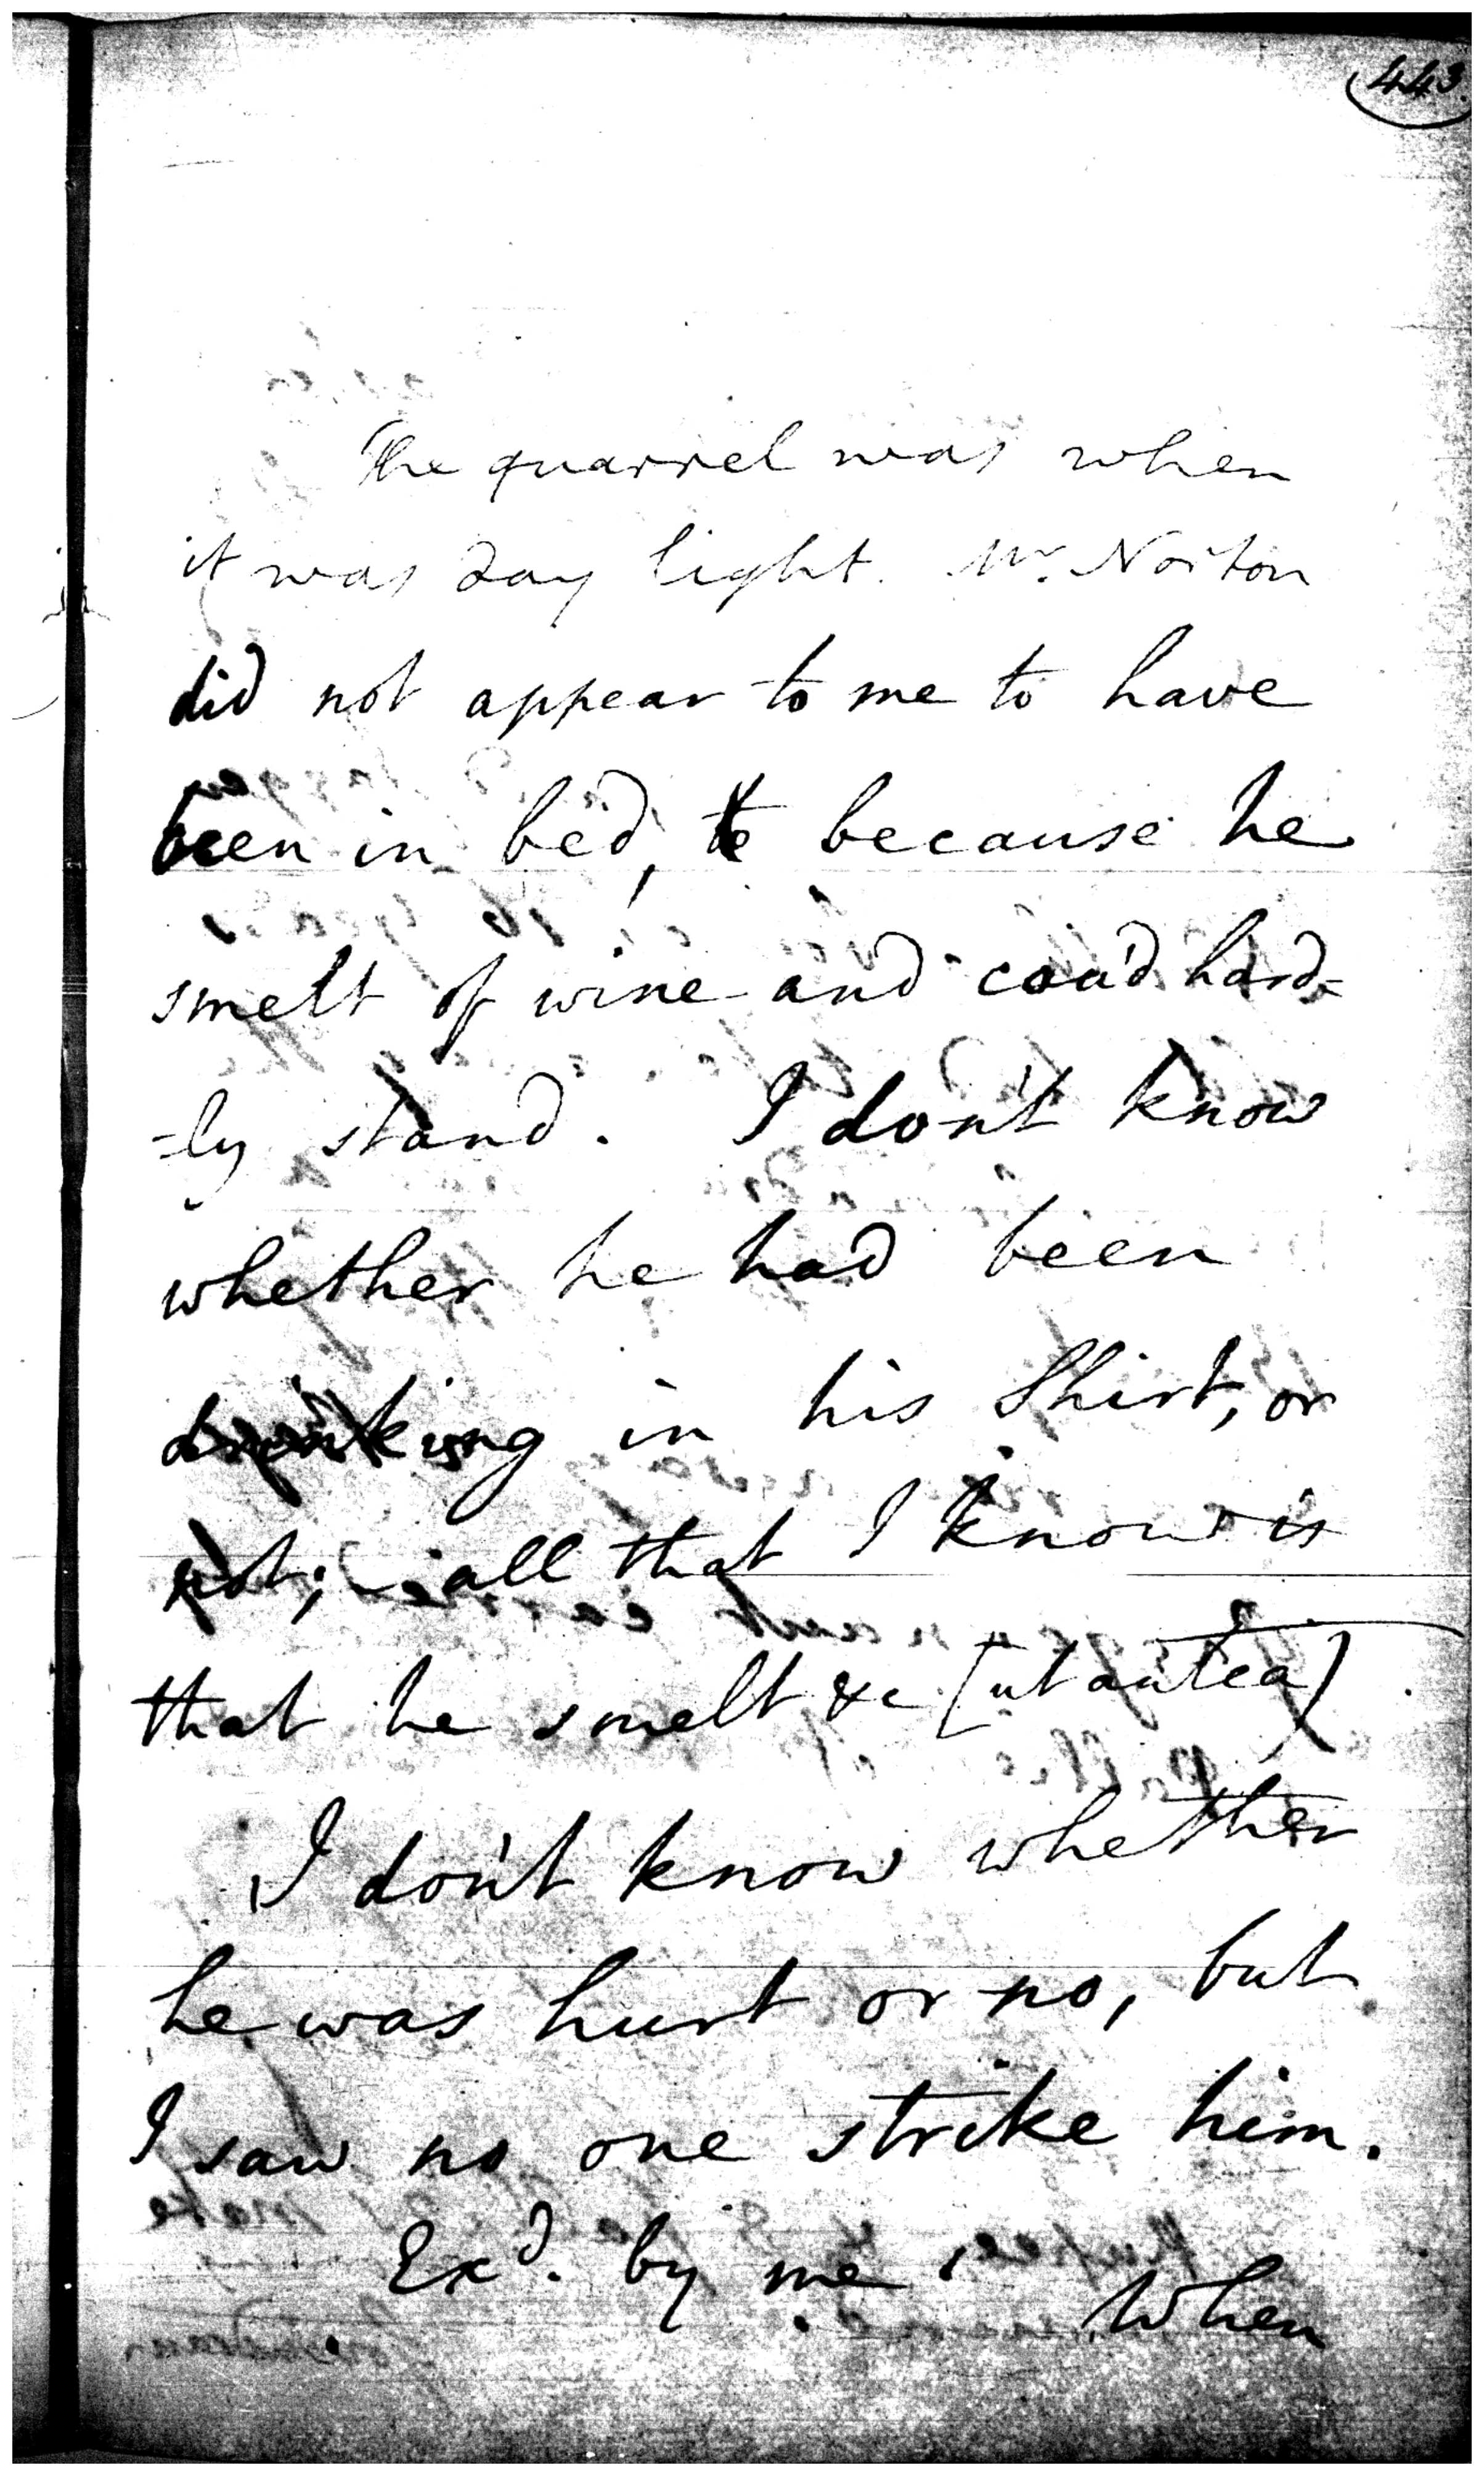 443.
The quarrel was when
it was day light. Mr. Norton
did not appear to me to have
been in bed, because he
smelt of wine and coud hard=
-ly stand. I don't know
whether he had been
drinking in his Shirt, or
not; - all that I know is
that he smelt &c [ut antea)
I don't know whether
he was hurt or no, but
I saw no one strike him.
Exd. by me.
When